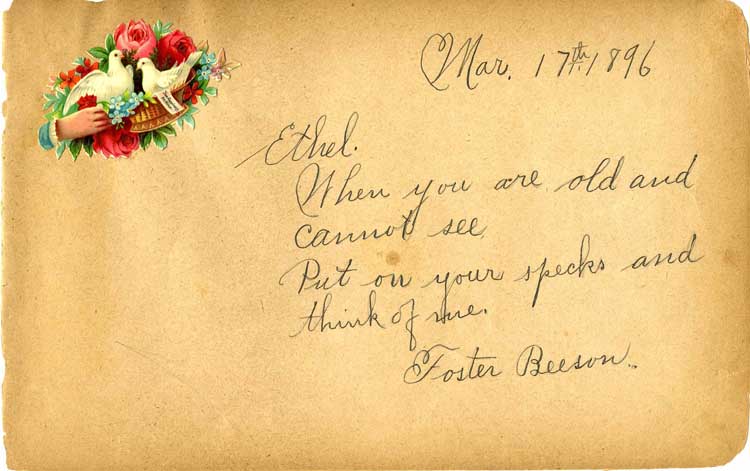 Mar. 17th. 1896
Ethel.
When you are old and
cannot see,
Put on your specks and
think of me.
Foster Beeson.